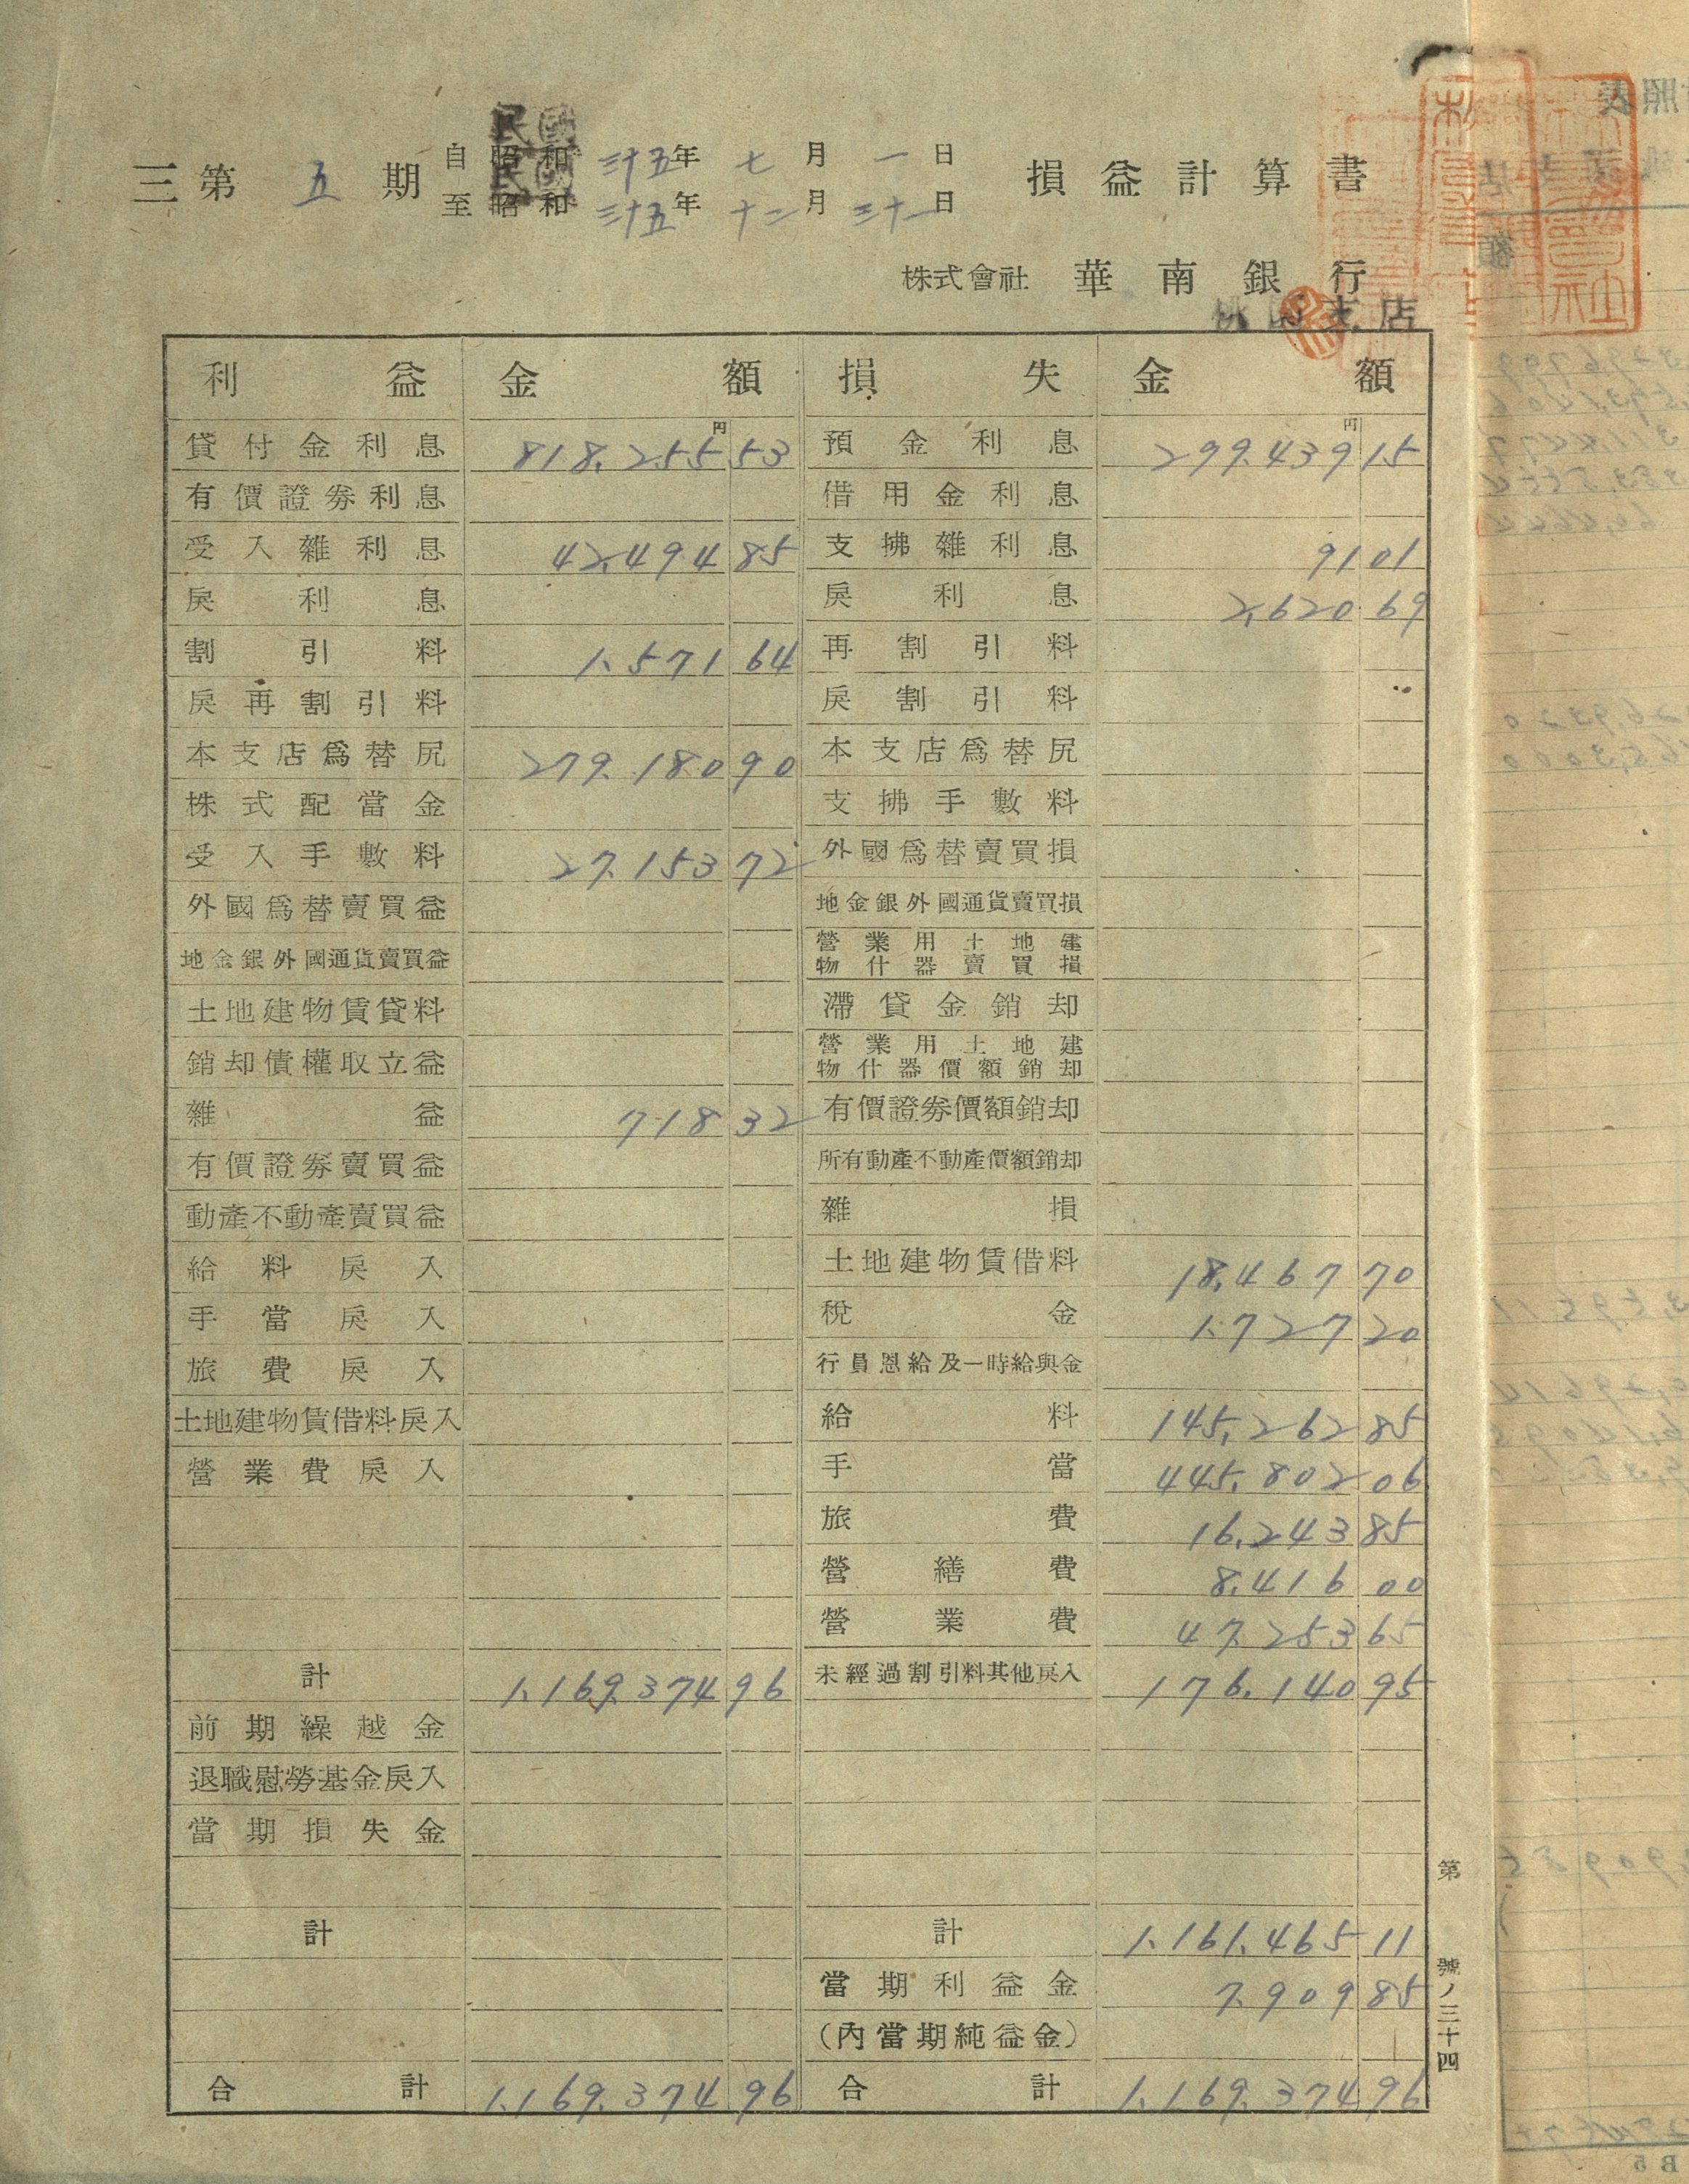 三第 五 期 自 民國 三十五年 七 月 一 日 損益計算書
至 民國 三十五年 十二 月 三十一 日
株式會社 華南銀行
桃園支店
利益 金額 損失 金額
貸付金利息 818,255 円 53 預金利息 299,439 円 15
有價證券利息 借用金利息
受入雜利息 42,494 85 支拂雜利息 91 01
戾利息 戾利息 2,620 69
割引料 1,571 64 再割引料
戾再割引料 戾割引料
本支店爲替尻 279,180 90 本支店爲替尻
株式配當金 支拂手數料
受入手數料 27,153 72 外國爲替賣買損
外國爲替賣買益 地金銀外國通貨賣買損
地金銀外國通貨賣買益 營業用土地建物什器賣買損
土地建物賃貸料 滯貸金銷却
銷却債權取立益 營業用土地建物什器價額銷却
雜益 718 32 有價證券價額銷却
有價證券賣買益 所有動產不動產價額銷却
動產不動產賣買益 雜損
給料戾入 土地建物賃借料 18,467 70
手當戾入 稅金 1,727 20
旅費戾入 行員恩給及一時給與金
土地建物賃借料戾入 給料 145,262 85
營業費戾入 手當 445,802 06
旅費 16,243 85
營繕費 8,416 00
營業費 47,253 65
計 1,169,374 96 未經過割引料其他戾入 176,140 95
前期繰越金
退職慰勞基金戾入
當期損失金
計 計 1,161,465 11
當期利益金 7,909 85
(內當期純益金)
合計 1,169,374 96 合計 1,169,374 96
第 號ノ三十四